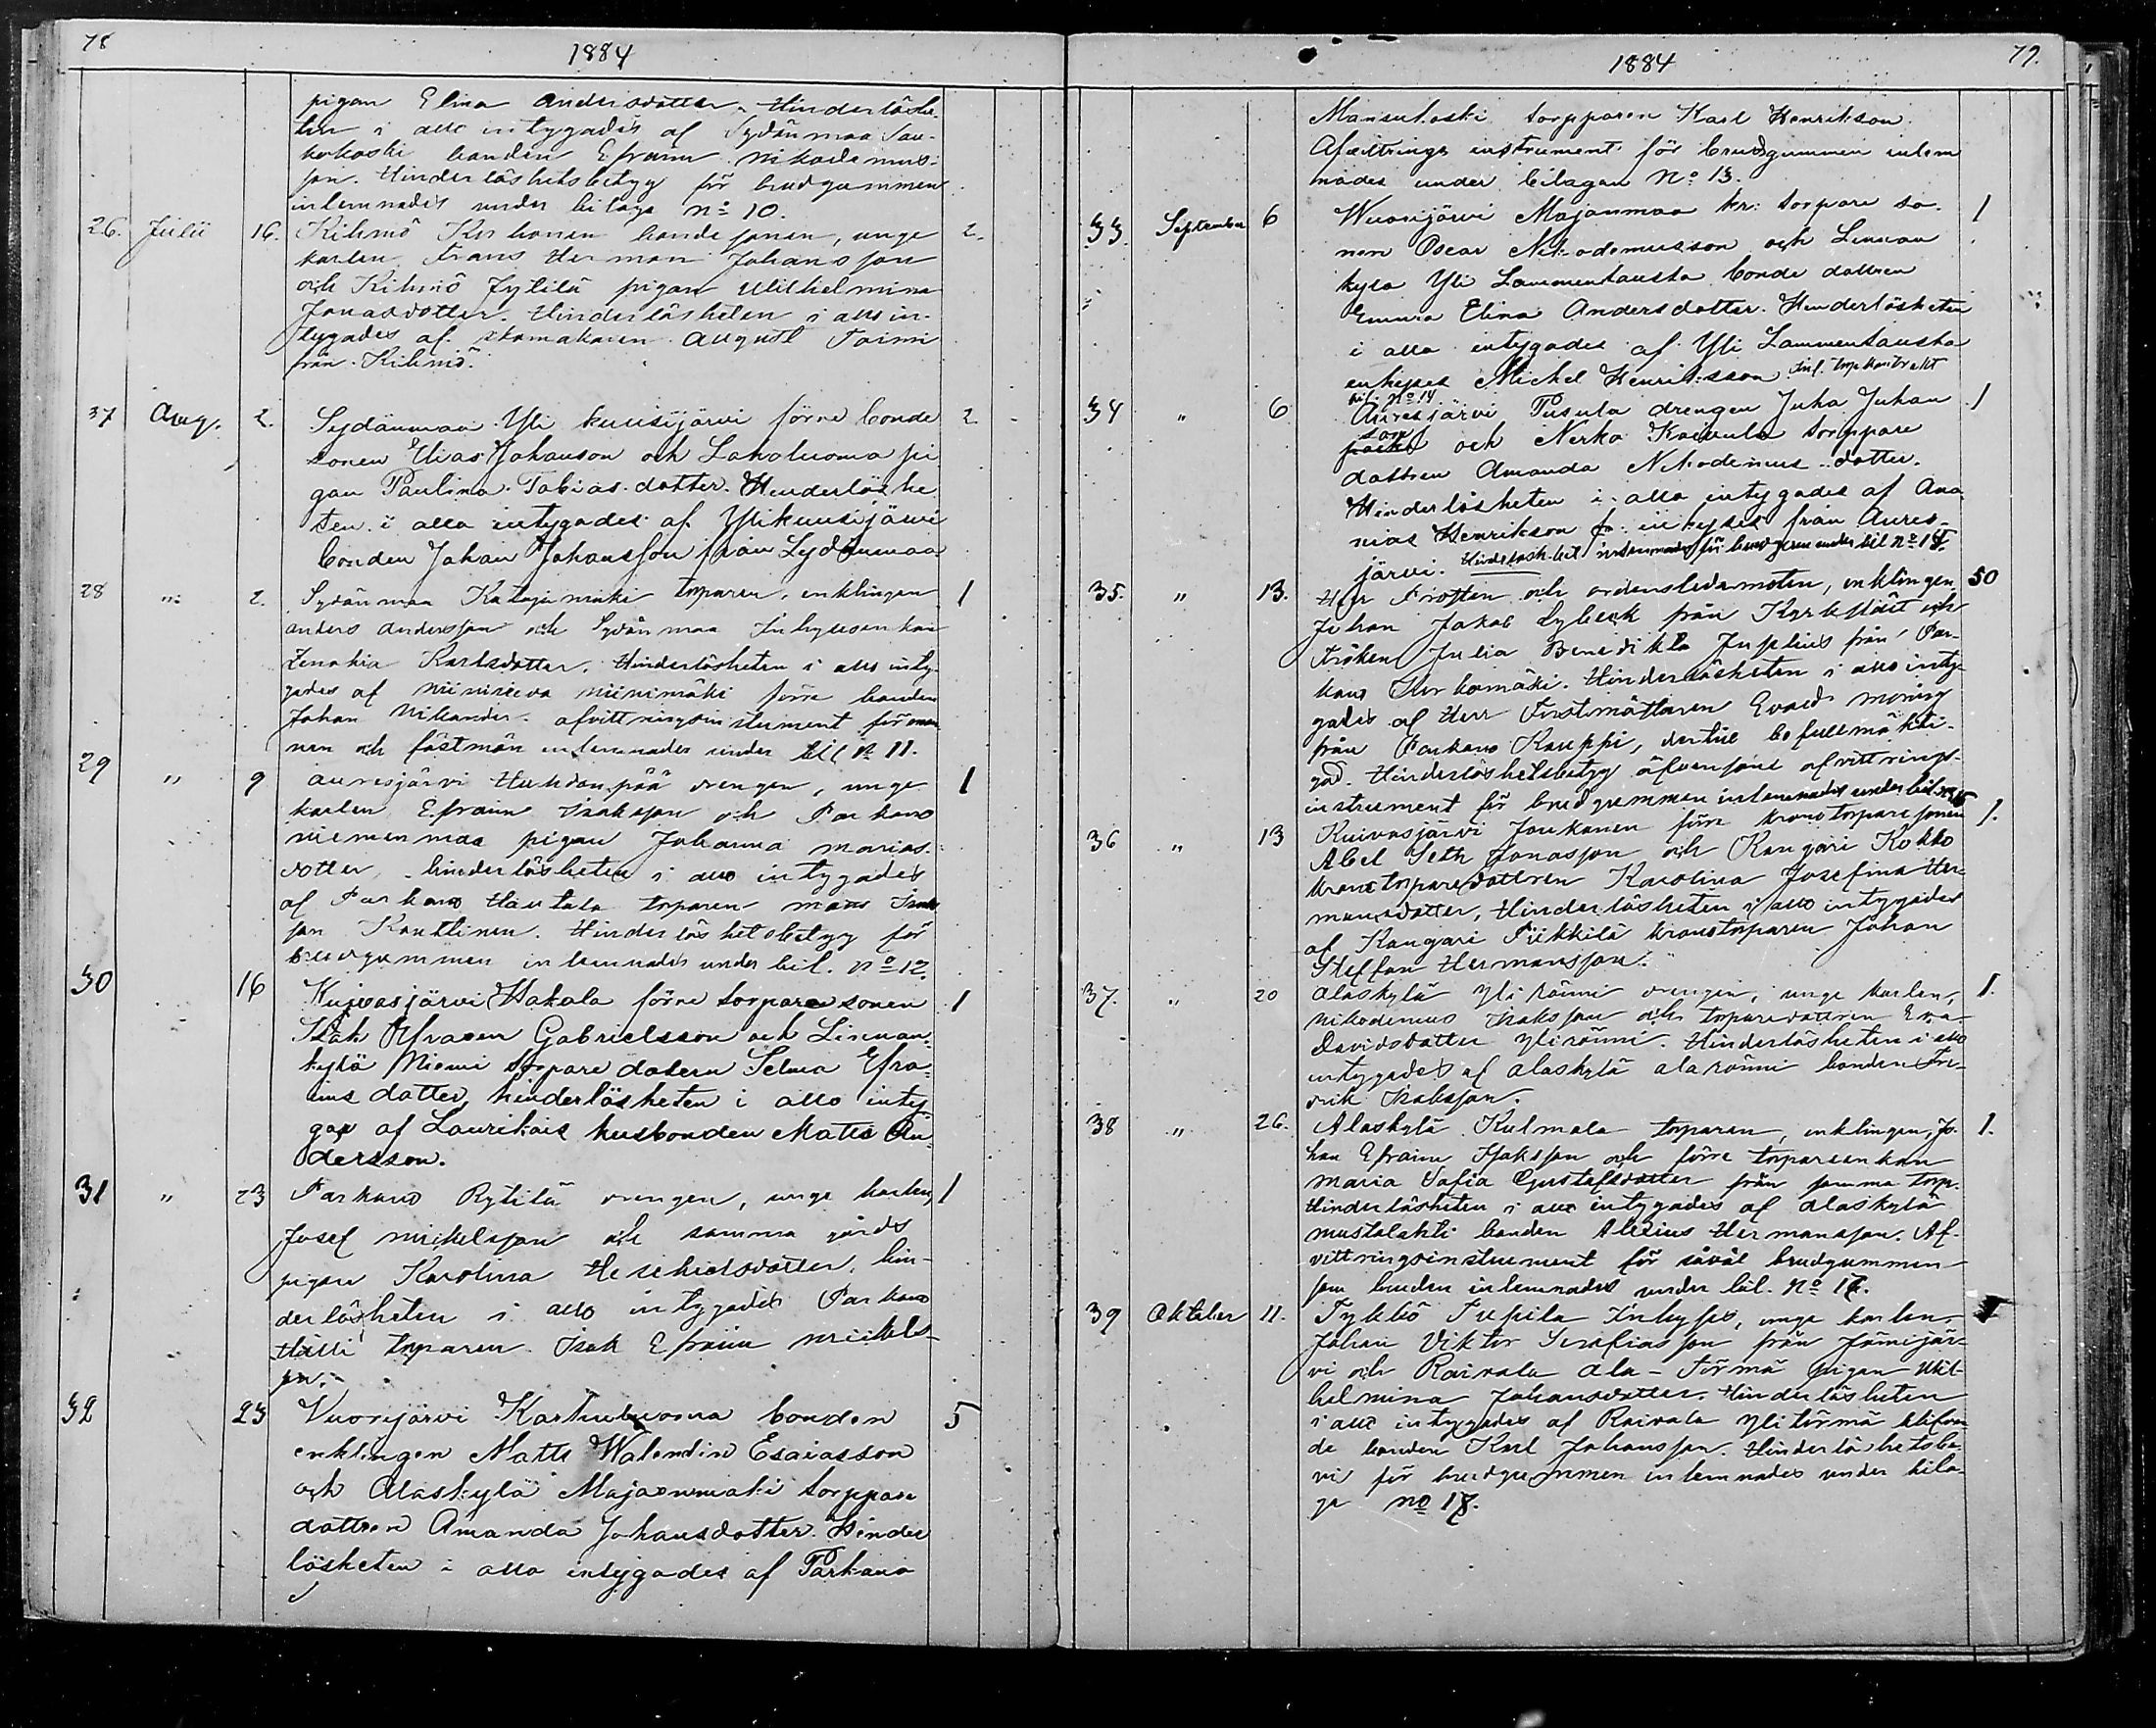 78
1884
pigan Elina Andersdotter. Hinderlöshe-
ten i allo intygades af Sydänmaa Sau-
kokoski bonden Efraim Nikodemus-
son. Hinderlöshetsbetyg för brudgummen
inlemnades under bilaga No 10.
26. Julii 16. Kihniö Korhonen bonde sonen, unge 2.
karlen Frans Herman Johansson
och Kihniö Jylilä pigan Wilhelmina
Jonasdotter. Hinderlösheten i allo in-
tygades af skomakaren August Toimi
från Kihniö.
37 Aug. 2. Sydänmaa Yli kuusijärvi förre bonde 2.
sonen Elias Johanson och Lahaluoma pi
gan Paulina Tobias dotter. Hinderlöshe
ten i allo intygades af Ylikuusijärvi
bonden Johan Johansson från Sydänmaa
28 " 2. Sydänmaa Katajamäki torparen, enklingen 1
Anders Andersson och Sydänmaa Inhyses enkan
Zenobia Karlsdotter. Hinderlösheten i allo inty-
gades af Niinineva Niinimäki förre bonden
Johan Nikander. afvittringsinstrument för man
nen och fästmön inlemnades under bil No 11.
29 " 9 Auresjärvi Huhdanpää drengen, unge 1
karlen Efraim Isaksson och Parkano
Niemenmaa pigan Johanna Marias-
dotter, hinderlösheten i allo intygades
af Parkano Hautala torparen Mats Isaks
son Konttinen. Hinderlöshetsbetyg för
brudgummen inlemnades under bil. No 12.
30 16 Kujvasjärvi Hakala förre torpare sonen 1
Isak Efraim Gabrielsson och Linnan-
kylä Niemi torpare dotern Selma Efra-
ims dotter, hinderlösheten i allo inty
gas af Laurikais husbonden Matts An-
dersson.
31 " 23 Parkano Rytilä drengen, unge karlen, 1
Josef Mickelsson och samma gårds
pigan Karolina Hesekielsdotter, hin-
derlösheten i allo intygades Parkano
Hälli torparen Isak Efraim Mickels-
son.
32 23 Vuorijärvi Karttuluoma bonden 5
enklingen Matts Walendin Esaiasson
och Alaskylä Majaanmäki torppare
dottren Amanda Johansdotter. Hinder
lösheten i allo intygades af Parkano
1884
79.
Mansukoski torpparen Karl Henrikson.
Afvittrings instrument för brudgummen inlem
nades under bilagan No 13.
33. September 6 Wuorijärvi Majanmaa kr: torpare so- 1
nen Oscar Nikodemusson och Linnan
kylä Yli Lammentausta bonde dottren
Emma Elina Andersdotter. Hinderlösheten
i allo intygades af Yli Lammentausta
inhyses Mickel Henriksson. Inl. torp kontrakt
bil. No 14
34 " 6 Auresjärvi Pusula drengen Juha Juhan 1
son
och Nerko Koivula torppare
dottren Amanda Nikodemus dotter.
Hinderlösheten i allo intygades af Ana
nias Henrikson fr. inhyses från Aures-
järvi. Hinderlösh. bet inlemnades för brudgum under bil No 15.
35. " 13. Herr Prosten och ordensledamoten, enklingen 50
Johan Jakob Lybeck från Kyrkslätt och
Fröken Julia Benedikta Juselius från Par-
kano Kirkomäki. Hinderlösheten i allo inty-
gades af Herr Forstmästaren Evald Moring
från Parkano Kauppi, dertill befullmäkti-
gad. Hinderlöshetsbetyg äfvensom afvittrings-
instrument för brudgummen inlemnades under bil. No 16
36 " 13 Kuivasjärvi Joukanen förre kronotorpare sonen 1.
Abel Seth Jonasson och Kangari Kokko
kronotorparedottren Karolina Josefina Her-
mansdotter, Hinderlösheten i allo intygades
af Kangari Pükkilä kronotorparen Johan
Steffan Hermansson.
37. " 20 Alaskylä Yli Rönni drengen, unge karlen, 1.
Nikodemus Isaksson och torparedottren Eva
Davidsdotter Ylirönni. Hinderlösheten i allo
intygades af Alaskylä Alarönni bonden Fre-
drik Isaksson.
38 " 26. Alaskylä Kulmala torparen, enklingen, Jo- 1.
han Efraim Isaksson och förre torpareenkan
Maria Sofia Gustafsdotter från samma torp.
Hinderlösheten i allo intygades af Alaskylä
Mustalahti bonden Alexius Hermansson. Af-
vittringsinstrument för såväl brudgummen
som bruden inlemnades under bil. No 17.
39 Oktober 11. Jyllkö Tupila Inhyses, unge karlen, 1
Johan Viktor Serafiasson från Jämijär-
vi och Raivala Ala-Törmä pigan Wil-
helmina Johansdotter. Hinderlösheten
i allo intygades af Raivala Ylitörmä blifvan-
de bonden Karl Johansson. Hinderlöshetsbe-
vis för brudgummen inlemnades under bila-
ga No 18.